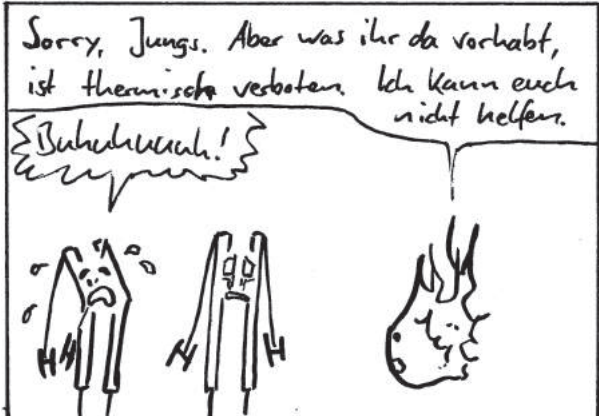 Sorry, Jungs. Aber was ihr da vorhabt,
ist thermisch verboten. Ich kann euch
nicht helfen.
Buhuhuuuh!
H
H
H
H